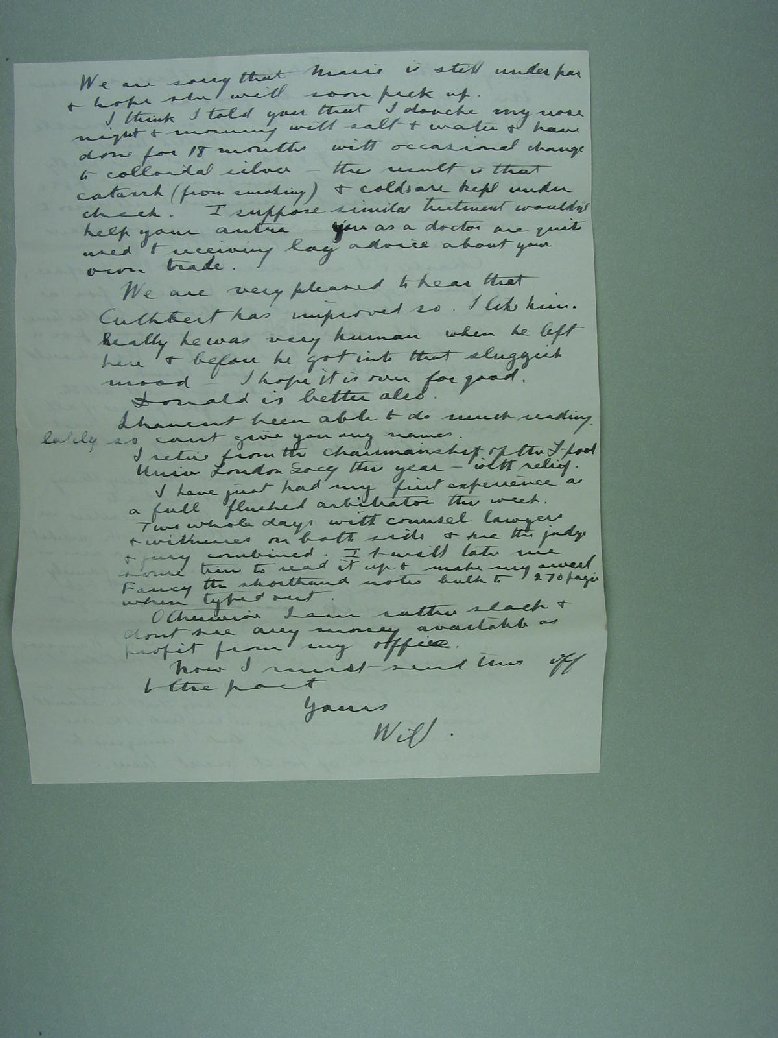 We are sorry that Marie is still under par
& hope she will soon pick up.
I think I told you that I douche my nose
night & morning with salt & water & have
done for 18 months with occasional change
to colloidal silver – the result is that
catarrh (from smoking) & colds are kept under
check. I suppose similar treatment wouldnt
help your You as a doctor are quite
used to receiving lay advice about your
own trade.
We are very pleased to hear that
Cuthbert has improved so. I like him.
Really he was very human when he left
here & before he got into that sluggish
mood – I hope it is over for good.
Donald is better also.
I havent been able to do much reading
lately so cant give you any names.
I retire from the chairmanship of the L'pool
Univ London Socy this year – with relief.
I have just had my first experience as
a full fledged arbitrator this week.
Two whole days with counsel lawyers
& witnesses on both sides & me the judge
& jury combined. It will take me
some time to read it up & make my award
Fancy the shorthand notes bulk to 270 pages
when typed out.
Otherwise I am rather slack &
dont see any money available as
profit from my office.
Now I must send this off
to the post
Yours
Will.